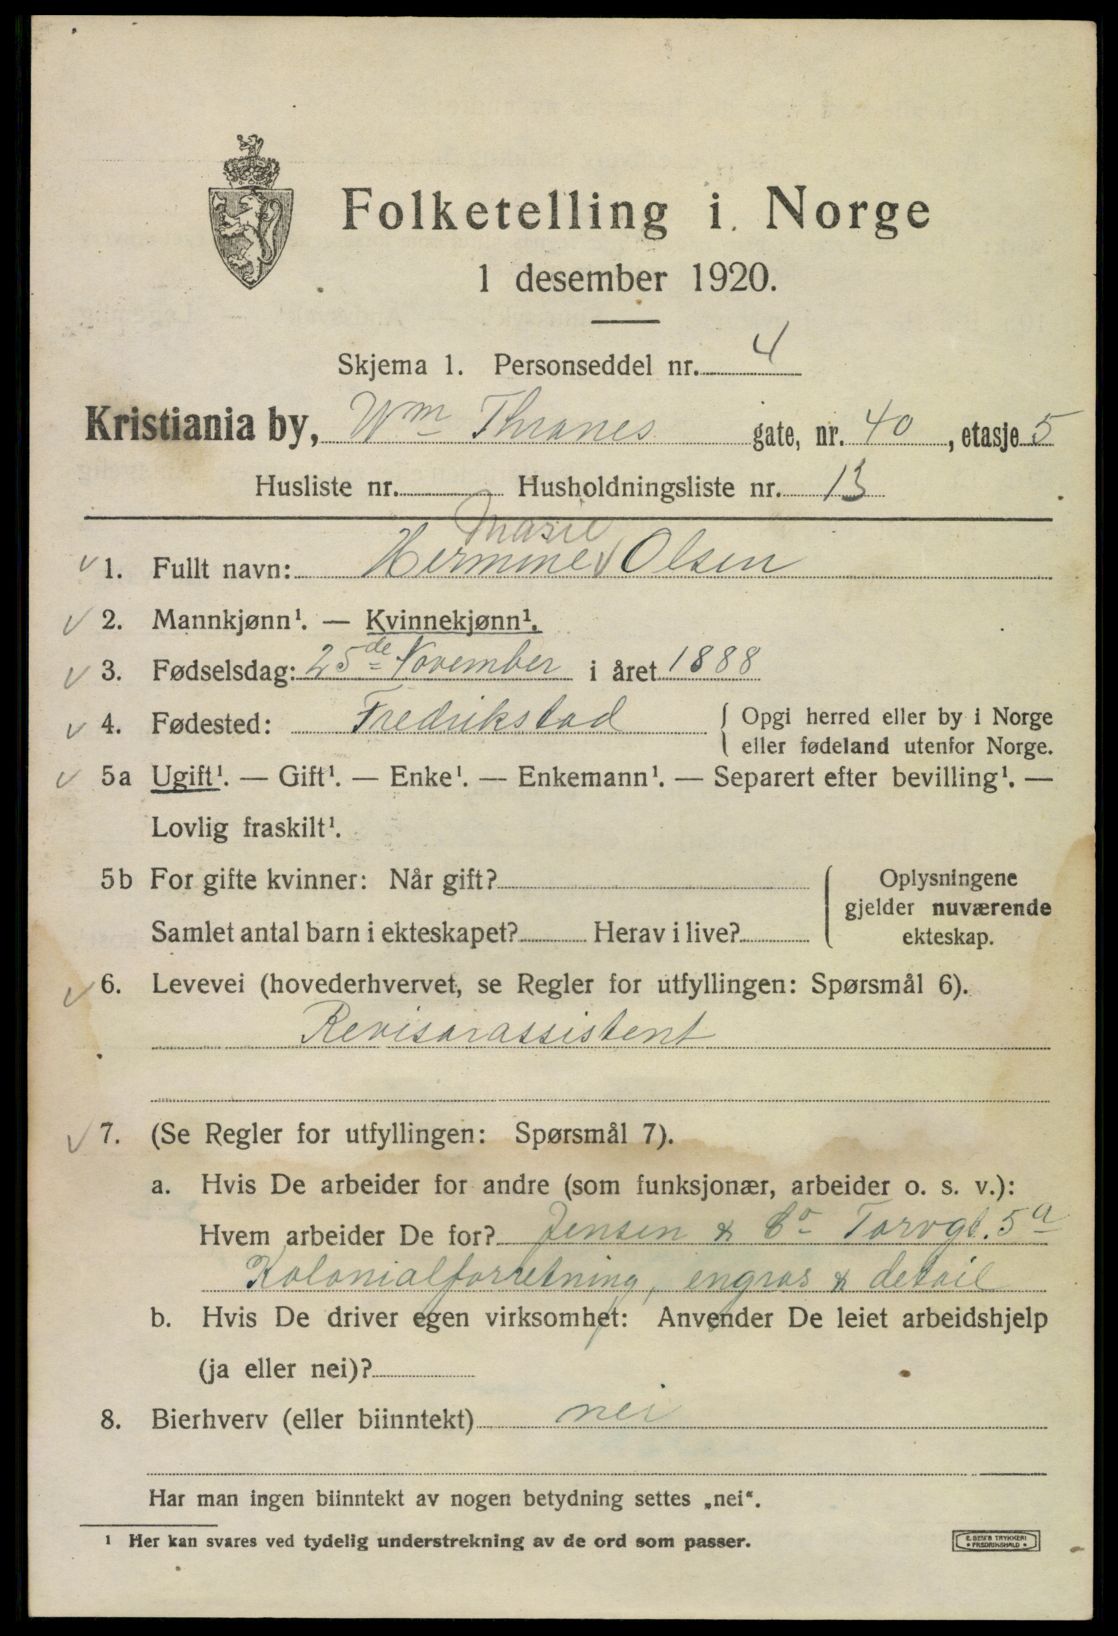 Folketelling i Norge
1 desember 1920.
Skjema 1. Personseddel nr. 4
Kristiania by, Wm Thranes gate, nr. 40, etasje 5
Husliste nr. Husholdningsliste nr. 13
Marie
1. Fullt navn: Hermine Olsen
2. Mannkjønn¹. — Kvinnekjønn¹.
3. Fødselsdag: 25de November i året 1888
4. Fødested: Fredrikstad { Opgi herred eller by i Norge
eller fødeland utenfor Norge.
5a Ugift¹. — Gift¹. — Enke¹. — Enkemann¹. — Separert efter bevilling¹. —
Lovlig fraskilt¹.
5b For gifte kvinner: Når gift? Oplysningene
gjelder nuværende
Samlet antal barn i ekteskapet? Herav i live? ekteskap.
6. Levevei (hovederhvervet, se Regler for utfyllingen: Spørsmål 6).
Revisorassistent
7. (Se Regler for utfyllingen: Spørsmål 7).
a. Hvis De arbeider for andre (som funksjonær, arbeider o. s. v.):
Hvem arbeider De for? Jensen & Co Torvgt. 5a
Kolonialforretning, engros & detail
b. Hvis De driver egen virksomhet: Anvender De leiet arbeidshjelp
(ja eller nei)?
8. Bierhverv (eller biinntekt) nei
Har man ingen biinntekt av nogen betydning settes „nei“.
¹ Her kan svares ved tydelig understrekning av de ord som passer.
E. SEM'S TRYKKERI
• FREDRIKSHALD •